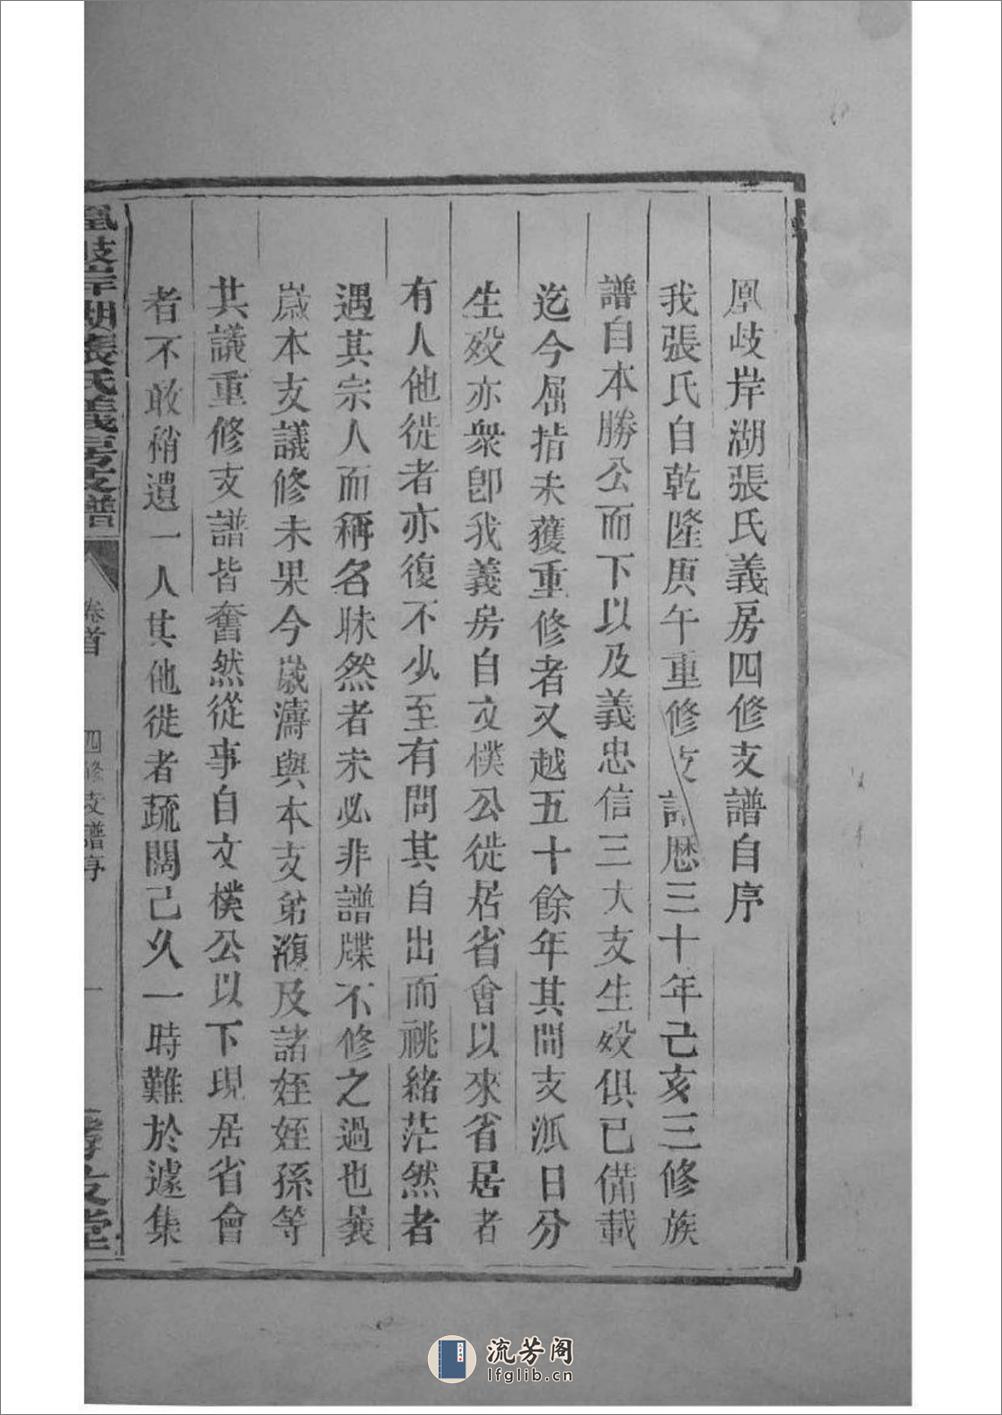 凰歧岸湖張氏義房四修支譜自序
我張氏自乾隆庚午重修支譜歷三十年己亥三修族
譜自本勝公而下以及義忠信三大支生歿俱已備載
迄今屈指未獲重修者又越五十餘年其間支派日分
生歿亦衆卽我義房自文樸公徙居省會以來省居者
有人他徙者亦復不少至有問其自出而祧緒茫然者
遇其宗人而稱名昧然者未必非譜牒不修之過也曩
歲本支議修未果今歲濤與本支弟灝及諸姪姪孫等
共議重修支譜皆奮然從事自文樸公以下現居省會
者不敢稍遺一人其他徙者疏闊己久一時難於遽集
凰歧岸湖張氏義房支譜
卷首
四修支譜序
一
孝友堂
流芳阁
lfglib.cn